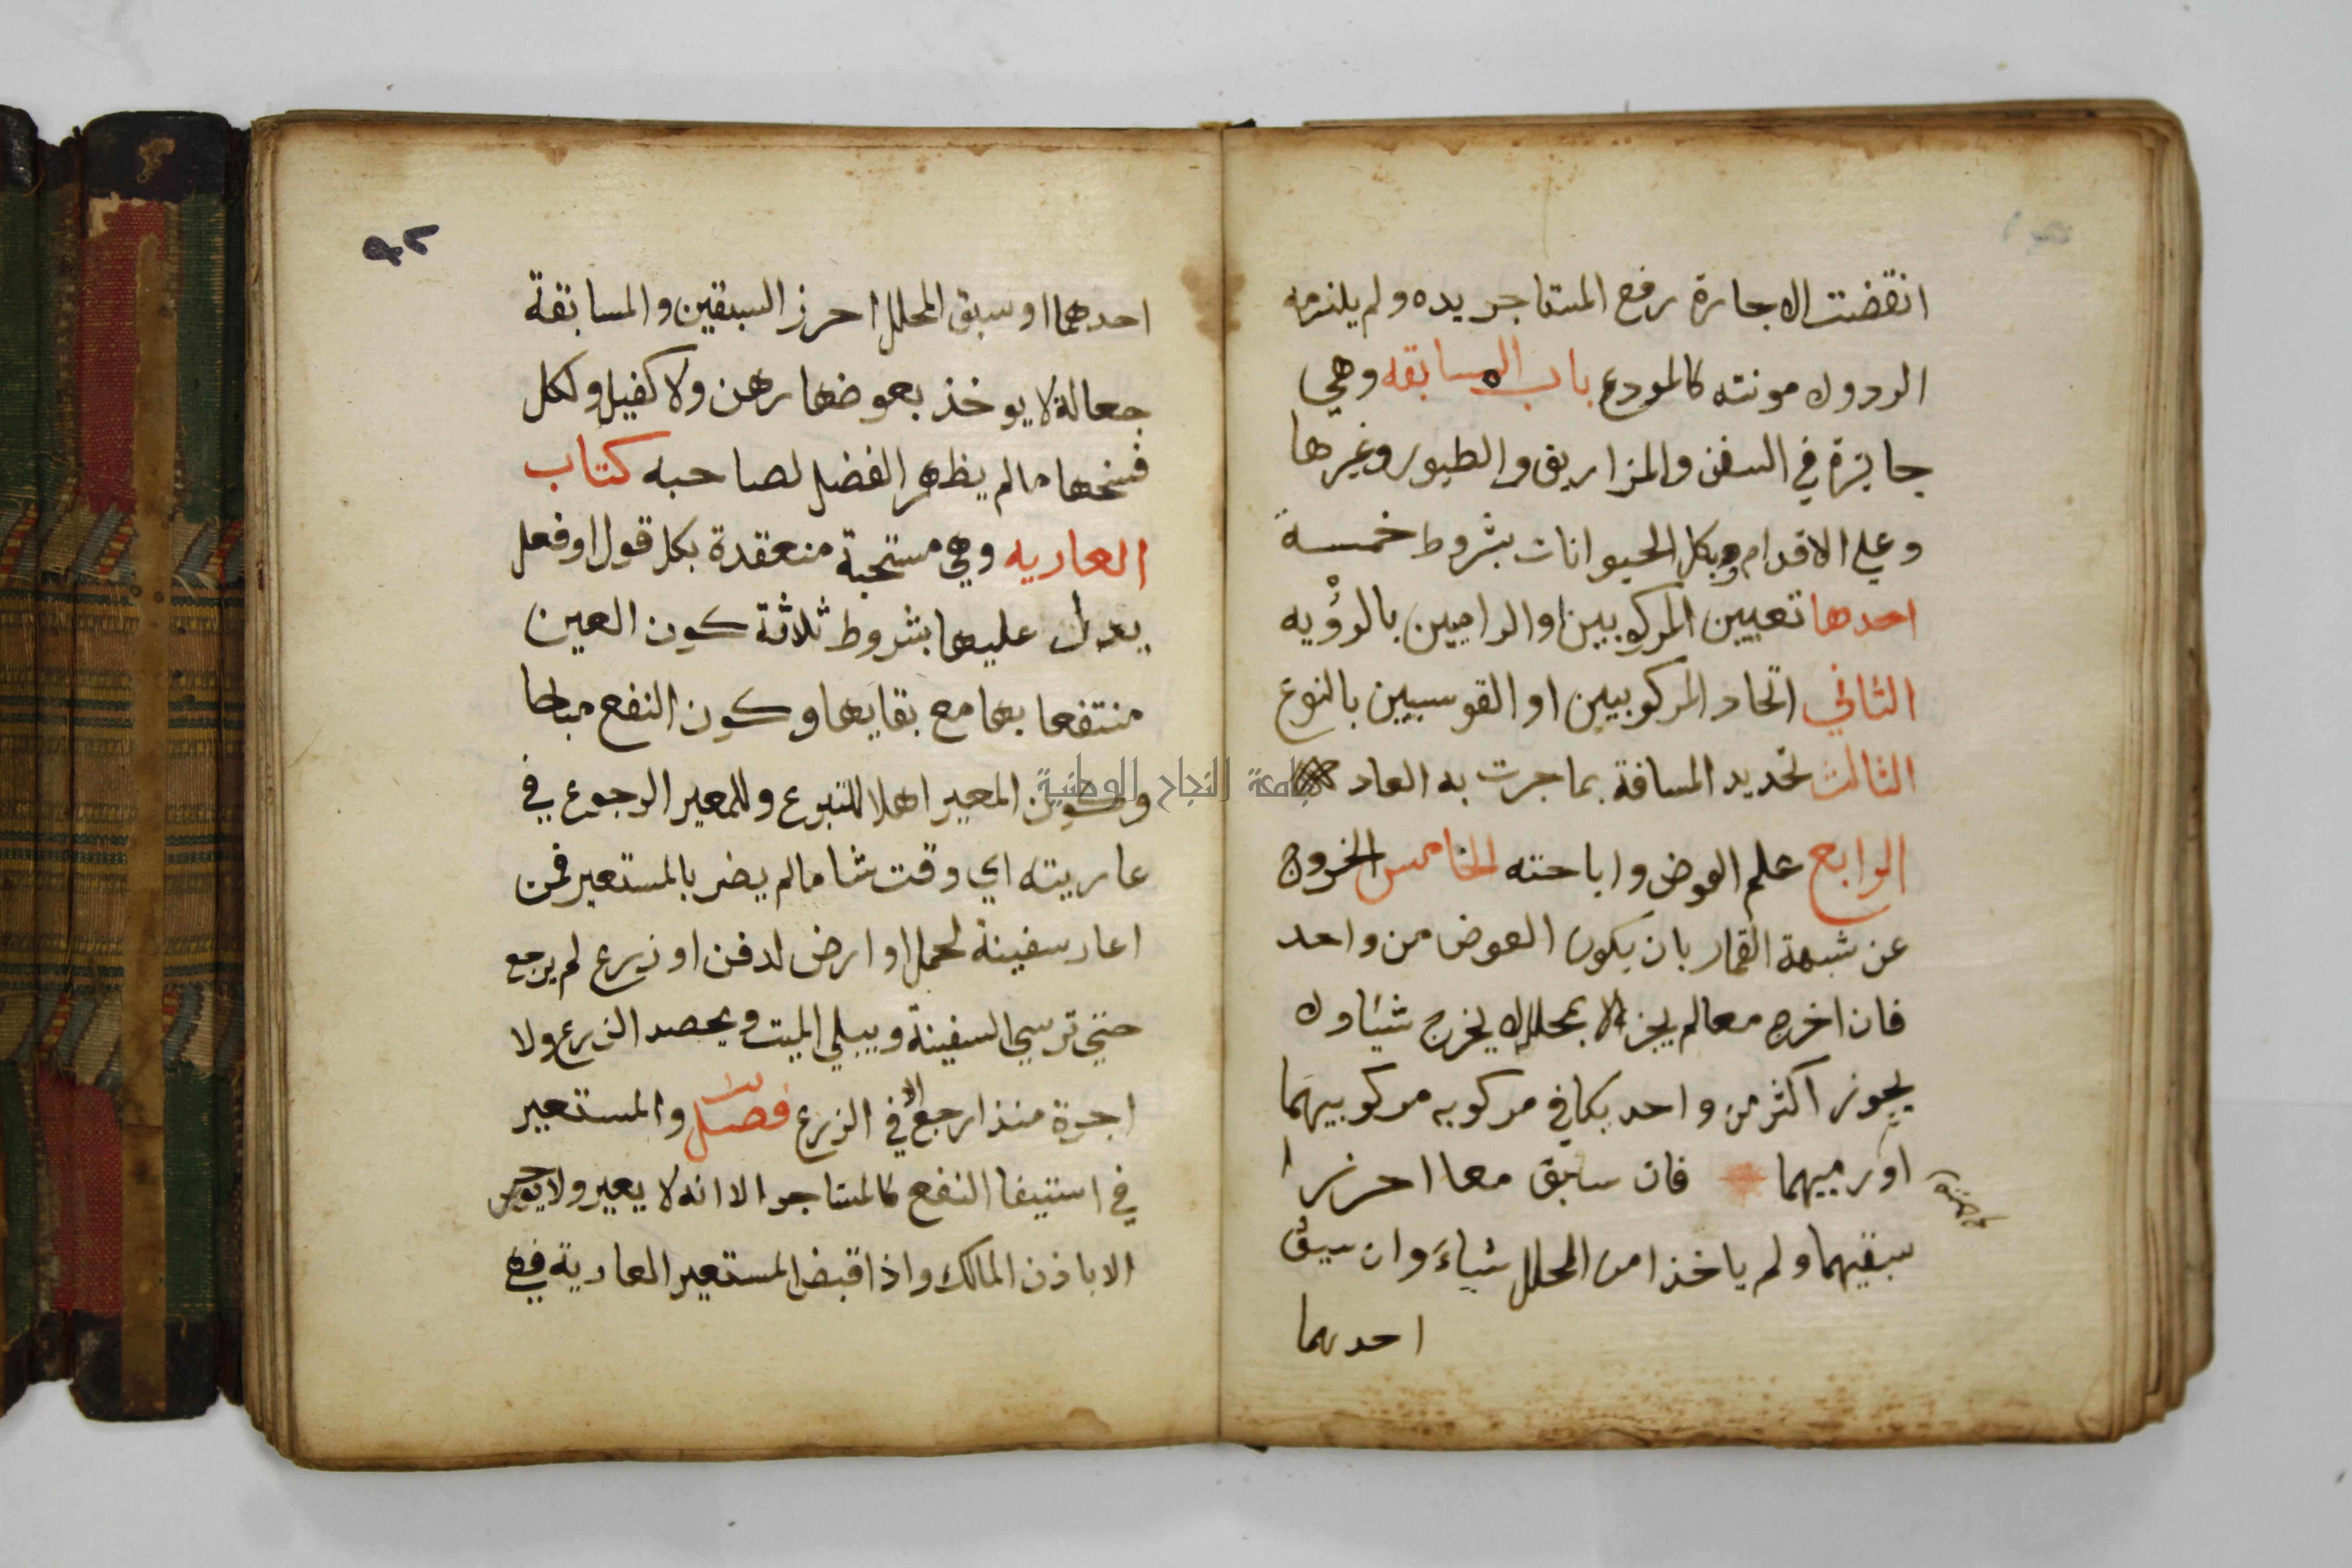 انقضت الاجارة رفع المستاجر يده ولم يلزمه
الرد ولا مونته كالمودع باب المسابقه وهي
جايزة في السفن والمزاريق والطيور وغيرها
وعلي الاقدام وبكل الحيوانات بشروط خمسة
احدها تعيين المركوبين او الراميين بالرؤيه
الثاني اتحاد المركوبين او القوسين بالنوع
الثالث تحديد المسافة بما جرت به العاد
الرابع علم العوض واباحته الخامس الخروج
عن شبهة القمار بان يكون العوض من واحد
فان اخرج معا لم يجز الا بمحلل لا يخرج شيئا ولا
يجوز اكثر من واحد يكافي مركوبه مركوبيهما
او رميهما فان سابق معا احرزا
سبقيهما ولم ياخذا من المحلل شياء وان سبق
احدهما
٩٢
احدهما او سبق المحلل احرز السبقين والمسابقة
جعالة لا يوخذ بعوضها رهن ولا كفيل ولكل
فسخها ما لم يظهر الفضل لصاحبه كتاب
العاريه وهي مستحبة منعقدة بكل قول او فعل
يدل عليها بشروط ثلاثة كون العين
منتفعا بها مع بقايها وكون النفع مباحا
وكون المعير اهلا للتبرع وللمعير الرجوع في
عاريته اي وقت شا ما لم يضر بالمستعير فمن
اعار سفينة لحمل او ارض لدفن او زرع لم يرجع
حتي ترسي السفينة ويبلي الميت ويحصد الزرع ولا
اجرة منذ ارجع الا في الزرع فصل والمستعير
في استيفا النفع كالمستاجر الا انه لا يعير ولا يوجر
الا باذن المالك واذا قبض المستعير العارية فهي
جامعة النجاح الوطنية